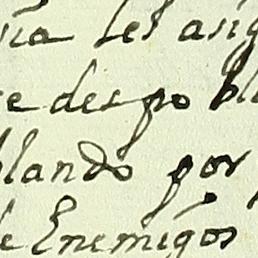 ña les ang
e despo bl
blando por
de Enemigos